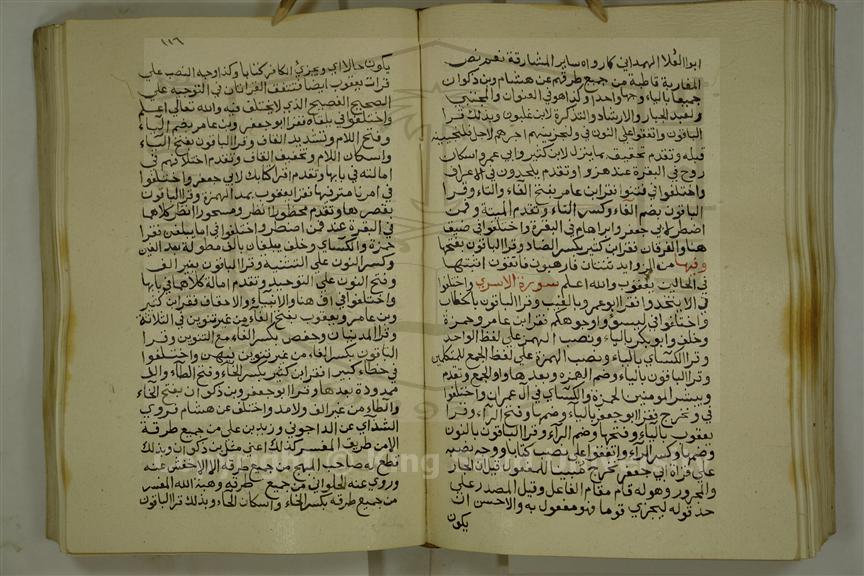 ابو العلا الهمداني كما رواه ساير المشارقة نعم نص
المغاربة قاطبة من جميع طرقهم عن هشام وبن ذكوان
جميعا بالياء وجها واحدا وكذا هو في العنوان والمجتبي
ولعبد الجبار والارشاد والتذكرة لابن غلبون وبذلك قرا
الباقون واتفقوا على النون في ولنجزينهم اجرهم لاجل فلنحيينه
قبله وتقدم تخفيف بما ينزل لابن كثير وابي عمرو واسكان
روح في البقرة عند هزوا وتقدم يلحدون في الاعراف
واختلفوا في فتنوا فقرا بن عامر بفتح الفاء والتاء وقرا
الباقون بضم الفاء وكسر التاء وتقدم الميتة وفمن
اضطر لابي جعفر وابراهام في البقرة واختلفوا في ضيق
هنا والفرقان فقرا بن كثير بكسر الضاد وقرا الباقون بفتحها
وفيها من الزوايد ثنتان فارهبون فاتقون اثبتها
في الحالين يعقوب والله اعلم سورة الاسري واختلفوا
في الا يتخذوا فقرا ابو عمرو بالغيب وقرا الباقون بالخطاب
واختلفوا في ليسؤا وجوهكم فقرا بن عامر وحمزة
وخلف وابو بكر بالياء ونصب الهمزة على لفظ الواحد
وقرا الكسائي بالياء ونصب الهمزة على لفظ الجمع للمتكلمين
وقرا الباقون بالياء وضم الهمزة وبعدها واو الجمع وتقدم
ويبشر المومنين لحمزة والكسائي في آل عمران واختلفوا
في ونخرج فقرا ابو جعفر بالياء وضمها وفتح الراء وقرا
يعقوب بالياء وفتحها وضم الراء وقرا الباقون بالنون
وضمها وكسر الراء واتفقوا على نصب كتابا ووجه نصبه
على قراة ابي جعفر يخرج مبنيا للمفعول قيل ان الجار
والمجرور وهو له قام مقام الفاعل وقيل المصدر على
حد قوله ليجزي قوما فهو مفعول به والاحسن ان
يكون
١١٦
يكون حالا اي ويخرج الطائر كتابا وكذا وجه النصب على
قراة يعقوب ايضا فتتفق القراتان في التوجيه على
الصحيح الفصيح الذي لا يختلف فيه والله تعالى اعلم
واختلفوا في يلقاه فقرا ابو جعفر وبن عامر بضم الياء
وفتح اللام وتشديد القاف وقرا الباقون بفتح الياء
واسكان اللام وتخفيف القاف وتقدم اختلافهم في
امالته في بابها وتقدم اقرا كتابك لابي جعفر واختلفوا
في امرنا مترفيها فقرا يعقوب بمد الهمزة وقرا الباقون
بقصرها وتقدم محظورا انظر ومسحورا انظر كلاهما
في البقرة عند فمن اضطر واختلفوا في اما يبلغن فقرا
حمزة والكسائي وخلف يبلغان بالف مطولة بعد الغين
وكسر النون على التثنية وقرا الباقون بغير الف
وفتح النون على التوحيد وتقدم امالة كلاهما في بابها
واختلفوا في اف هنا والانبياء والاحقاف فقرا بن كثير
وبن عامر ويعقوب بفتح الفاء من غير تنوين في الثلاثة
وقرا المدنيان وحفص بكسر الفاء مع التنوين وقرا
الباقون بكسر الفاء من غير تنوين فيهن واختلفوا
في خطاء كبيرا فقرا بن كثير بكسر الخاء وفتح الطاء والف
ممدودة بعدها وقرا ابو جعفر وبن ذكوان بفتح الخاء
والطاء من غير الف ولا مد واختلف عن هشام فروي
الشذآي عن الداجوني وزيد بن علي من جميع طرقه
الا من طريق المفسر كذلك اعني مثل بن ذكوان وبذلك
قطع له صاحب المبهج من جميع طرقه الا الاخفش عنه
وروي عنه الحلواني من جميع طرقه وهبة الله المفسر
من جميع طرقه بكسر الخاء واسكان الطاء وبذلك قرا الباقون